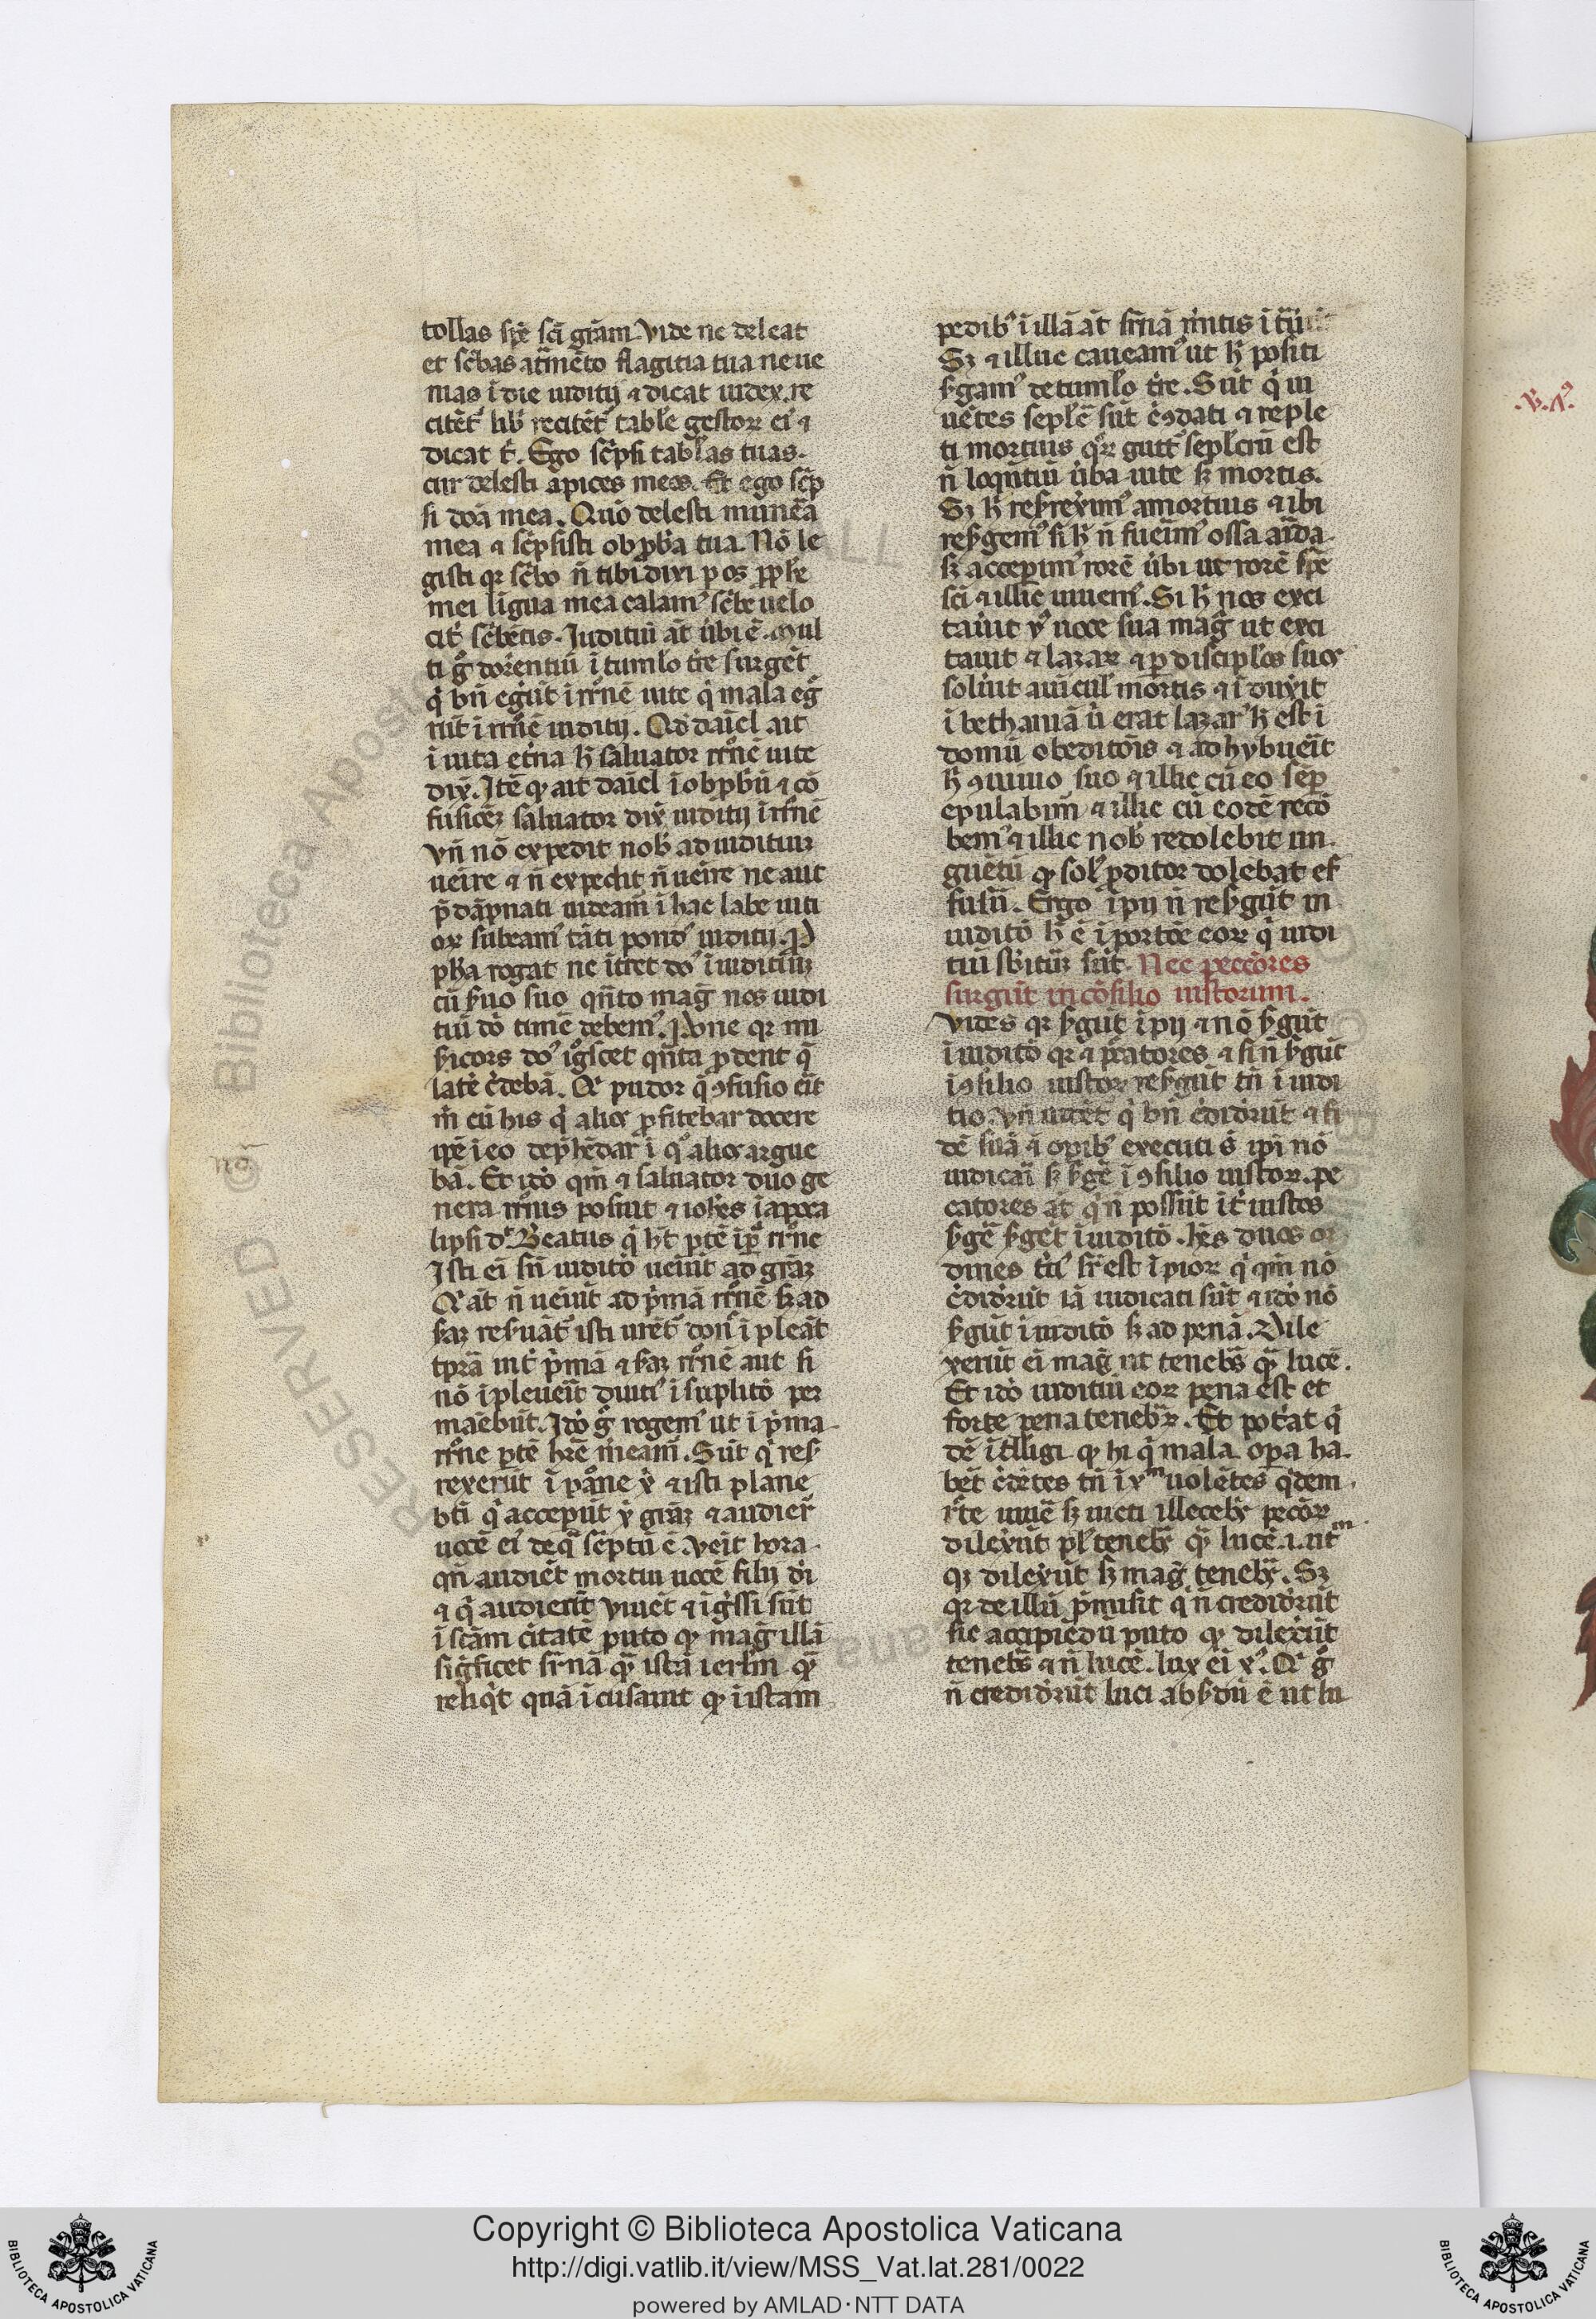 tollas sp̄c sc̄i grām. Vide ne deleat
et sc̄bas atm̄ēto flagitia tua neue
nias ī die iuditij ⁊ dicat iudex. re
citēt᷒ lib᷒ recitēt᷒ tabl̄e gestoꝝ ei᷒ ⁊
dicat t̄. Ego sc̄psi tabl̄as tuas.
cur delesti apices meos. Et ego sc̄p
si doā mea. Quō delesti munēa
mea ⁊ sc̄psisti obꝓb̄a tua. Nō le
gisti qꝛ sc̄bo n̄ tibi dixi p os ꝓph̄e
mei ligua mea calam᷒ sc̄be uelo
cit̄ sc̄bētis. Juditiū at̄ ubi ē. Mul
ti g̊ dor̄entiū ī tumlo tr̄e surgēt
q̇ bn̄ eger̄ūt ī rr̄onē uite q̇ mala eg̊
rūt ī rr̄onē iuditij. Qd̄ daīel ait
ī uita et̄na h̄ saluator rr̄onē uite
dix̄. Itē qꝫ ait daīel ī obꝓb̄ū ⁊ cō
fusiōeꝫ saluator dix̄ iuditij ī rr̄onē
Vn̄ nō expedit nob᷒ ad iuditiuꝫ
ueīre ⁊ n̄ expedit n̄ ueīre ne aut
p̄dāpnati uideam᷒ ī hac labe uiti
oꝝ subeam᷒ tāti pond᷒ iuditij. P
ph̄a rogat ne ītret do᷒ ī iuditiuꝫ
cū s̄uo suo qn̄to maḡ nos iudi
tiū dō timē debem᷒. Pone qꝛ mi
s̄icors do᷒ ig̊scet qn̄ta ꝓdent q̄
latē c̄debā. Q᷒ pudor q̄ ꝯfusio eīt
m̄ cū his q̇ alios ꝓfitebar docere
ip̄e ī eo dep̄hēdar ī q᷒ alios argue
bā. Et idō qm̄ ⁊ saluator duo ge
nera rr̄onis posuit ⁊ ioh̄es ī apoca
lipsi d᷒ Beatus q̇ h̄t ꝑtē ī pͫ rr̄one
Isti ei sn̄ iuditō ueiūt ad grāꝫ
Q᷒ at̄ n̄ ueiūt ad p̄mā rr̄onē sꝫ ad
s̄aꝫ res̄uāt᷒ isti urēt᷒ don᷒ ī pleāt
tp̄ra int̄ p̄mā ⁊ s̄aꝫ rr̄onē aut si
nō ī pleueīt diuti᷒ ī suplitō per
maēbūt. Idō g̊ rogem᷒ ut ī p̄ma
rr̄one ꝑtē hr̄e m̄eam᷒. Sūt q̇ res᷒
rexerūt ī pāōne x̄ ⁊ isti plane
bt̄i q̇ acceper̄ūt x̄ grāꝫ ⁊ audier̄
uocē ei᷒ deq̄ scptū ē. Veīt hora
qn̄ audiēt mortui uocē filij di
⁊ q̇ audierīt viuēt ⁊ īg̊ssi sūt
ī scām ciātē puto qꝫ maḡ illā
sig̊ficet fr̄nā qͫ istā ierl̄m qͫ
reliq̇t quā ī cusauit qꝫ ī istam
pedib᷒ ī illā at̄ fr̄nā
Sꝫ ⁊ illuc caueam᷒ ut h̄ positi
s̄gam᷒ de tuml̄o tr̄e. Sūt q̇ iu
uētes sepl̄c sūt c̄ꝯdati ⁊ reple
ti mortuis qͬꝝ gutt᷒ sepl̄crū est
n̄ loqn̄tiū ūba uite sꝫ mortis.
Sꝫ h̄ res̄rexim᷒ a mortuis ⁊ ibi
res̄gem᷒ si h̄ n̄ fueīm᷒ ossa aīda
sꝫ acceperim᷒ rorē ūbi ut rorē sp̄c
sc̄i ⁊ illic uiuem᷒. Si h̄ nos exci
tauīt x᷒ uoce sua mag᷒ ut exci
tauit ⁊ lazaꝝ ⁊ ꝑ discipl̄os suos
soluīt a uicul᷒ mortis ⁊ ī duxit
ī bethaniā ū erat lazar᷒ h̄ est ī
domū obeditōis ⁊ adhybueīt
h̄ ꝯuiuio suo ⁊ illic cū eo sēꝑ
epulabim᷒ ⁊ illic cū eodē recō
bem᷒ ⁊ illic nob᷒ redolebit un
guētū qꝫ sol᷒ ꝓditor dolebat ef
fusū. Ergo ī pij n̄ res̄gūt in
iuditō h̄ ē ī portōe eoꝝ q̇ iudi
tiū sb̄ituri sūt. Nec peccōres
surgūt in cōsilio iustorum.
Vides qꝛ s̄gūt ī pij ⁊ nō s̄gūt
ī iuditō qꝛ ⁊ pc̄atores ⁊ si n̄ s̄gūt
ī ꝯsilio iustoꝝ res̄gūt tn̄ ī iudi
tio. Vn̄ q̇ bn̄ c̄didērūt ⁊ fi
dē suā ⁊ opib᷒ executi s̄ ip̄i nō
iudicāī sꝫ s̄gē ī ꝯsilio iustoꝝ. pe
catores at̄ q̇ n̄ possūt it̄ iustos
s̄gē s̄gēt ī iuditō. h̄es duos or
dines tci᷒ sr̄ est ī pioꝝ q̇ qm̄ nō
c̄didērūt iā iudicati sūt ⁊ idō nō
s̄gūt ī iuditō sꝫ ad penā. Dile
xerūt ei mag᷒ ut tenebs̄ qͫ lucē.
Et idō iuditiū eoꝝ pena est et
forte pena tenebꝝ. Et pot̄at q̇
dē ītlligi qꝫ hi q̇ mala opa ha
bēt c̄dētes tn̄ ī xͫ uolētes q̇dem
rc̄te uiuē sꝫ uicti illecebꝭ peccōꝝ
dilexūt pl᷒ tenebꝭ qͫ lucē .i. utͫ
qꝫ dilexūt sꝫ mag᷒ tenebꝭ. Sꝫ
qꝛ de illū p̄misit q̇ n̄ credidērūt
sic accipiēdū puto qꝫ dilexerūt
tenebs̄ ⁊ n̄ lucē. lux ei x᷒. Q᷒ g̊
n̄ credidērūt luci abs̄dū ē ut lu
.v.
Copyright © Biblioteca Apostolica Vaticana
http://digi.vatlib.it/view/MSS_Vat.lat.281/0022
powered by AMLAD·NTT DATA
BIBLIOTECA APOSTOLICA VATICANA
BIBLIOTECA APOSTOLICA VATICANA